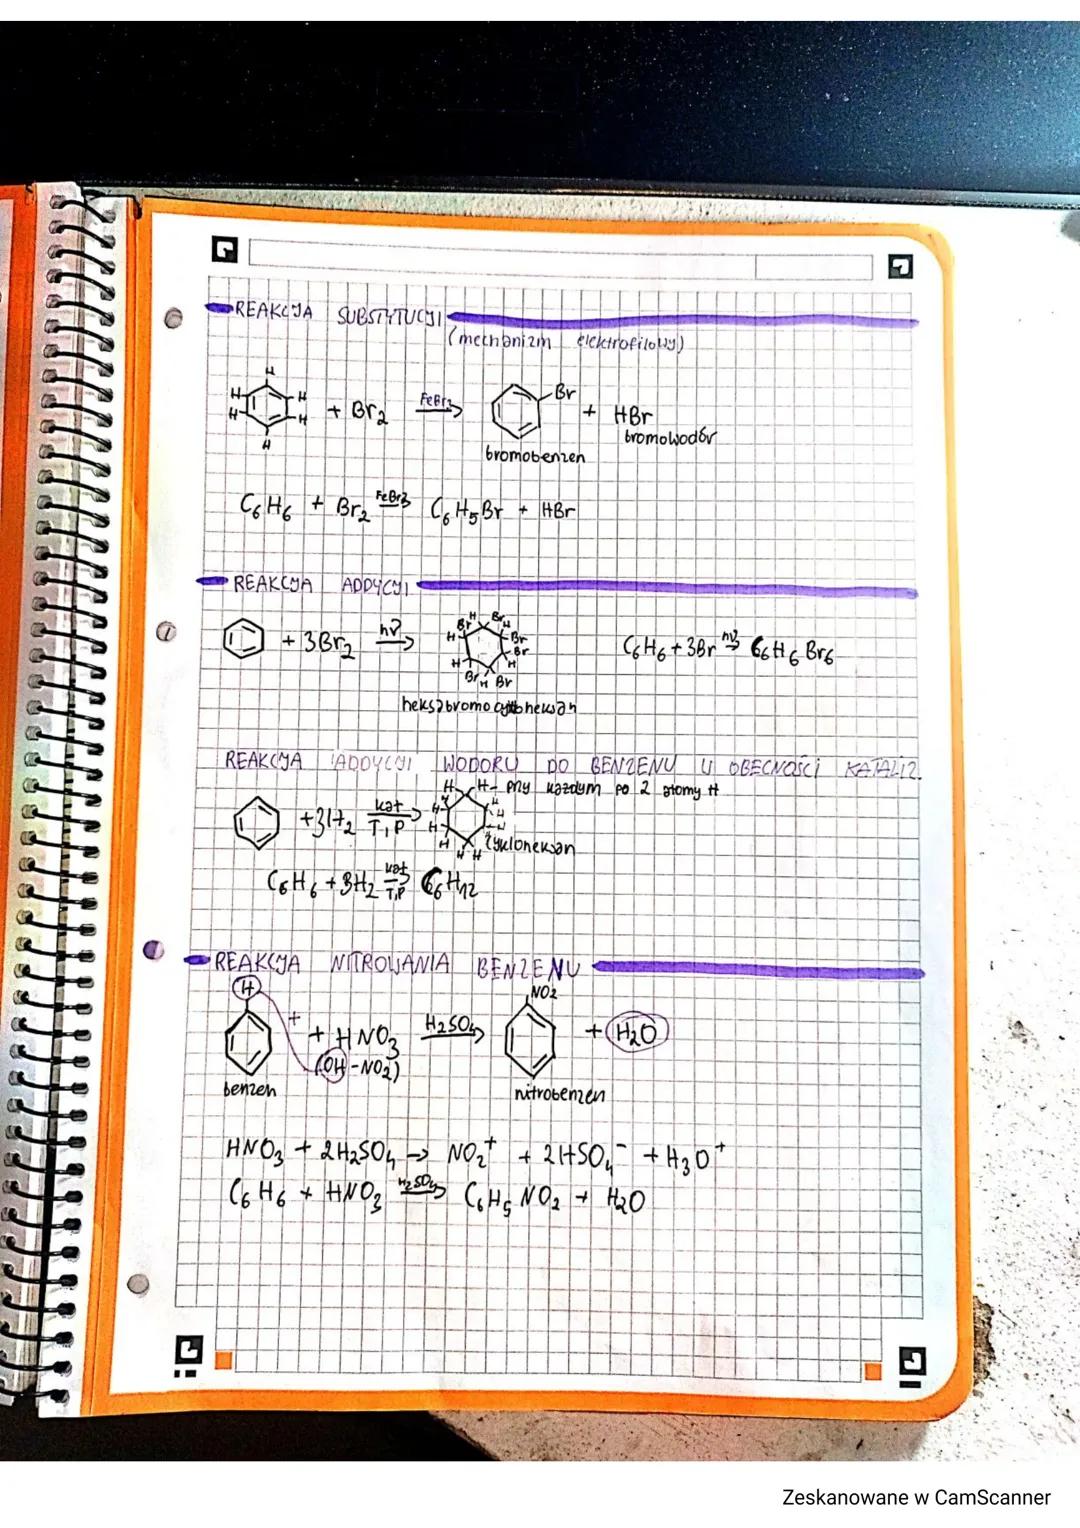 REAKCJA SUBSTYTUCJI
(mechanizm elektrofilowy)
H
H H
H H
H
+ Br₂ FeBr₃ → Br + HBr
bromobenzen bromowodór
C₆H₆ + Br₂ FeBr₃ → C₆H₅Br + HBr
REAKCJA ADDYCJI
+ 3Br₂ hν → H Br Br H H Br Br H H Br H Br
C₆H₆ + 3Br hν → C₆H₆Br₆
heksabromocykloheksan
REAKCJA ADDYCJI WODORU DO BENZENU W OBECNOŚCI KATALIZ.
H H - przy każdym po 2 atomy H
+3H₂ kat T, P →
cykloheksan
C₆H₆ + 3H₂ kat T,P → C₆H₁₂
REAKCJA NITROWANIA BENZENU
H NO₂
+ + HNO₃ H₂SO₄ → + H₂O
(OH-NO₂)
benzen nitrobenzen
HNO₃ + 2H₂SO₄ → NO₂⁺ + 2HSO₄⁻ + H₃O⁺
C₆H₆ + HNO₃ H₂SO₄ → C₆H₅NO₂ + H₂O
Zeskanowane w CamScanner